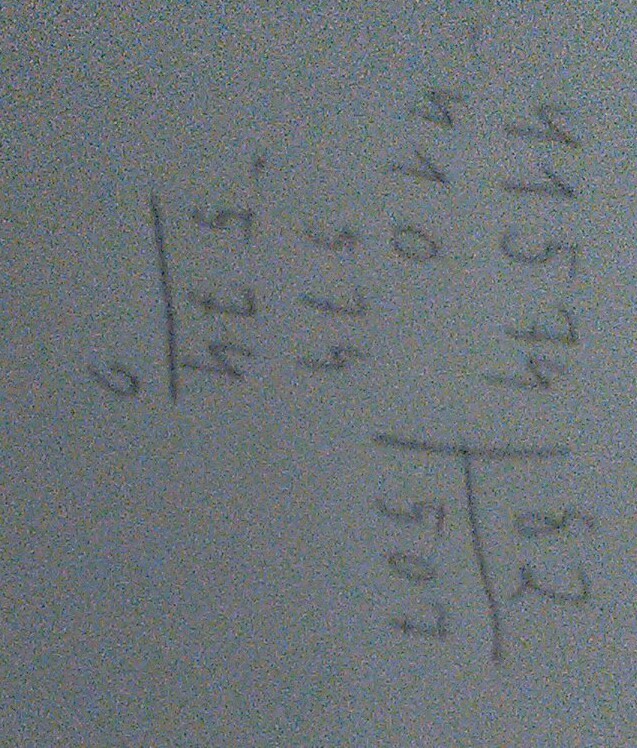 41574 82
- 410 507
574
- 574
0